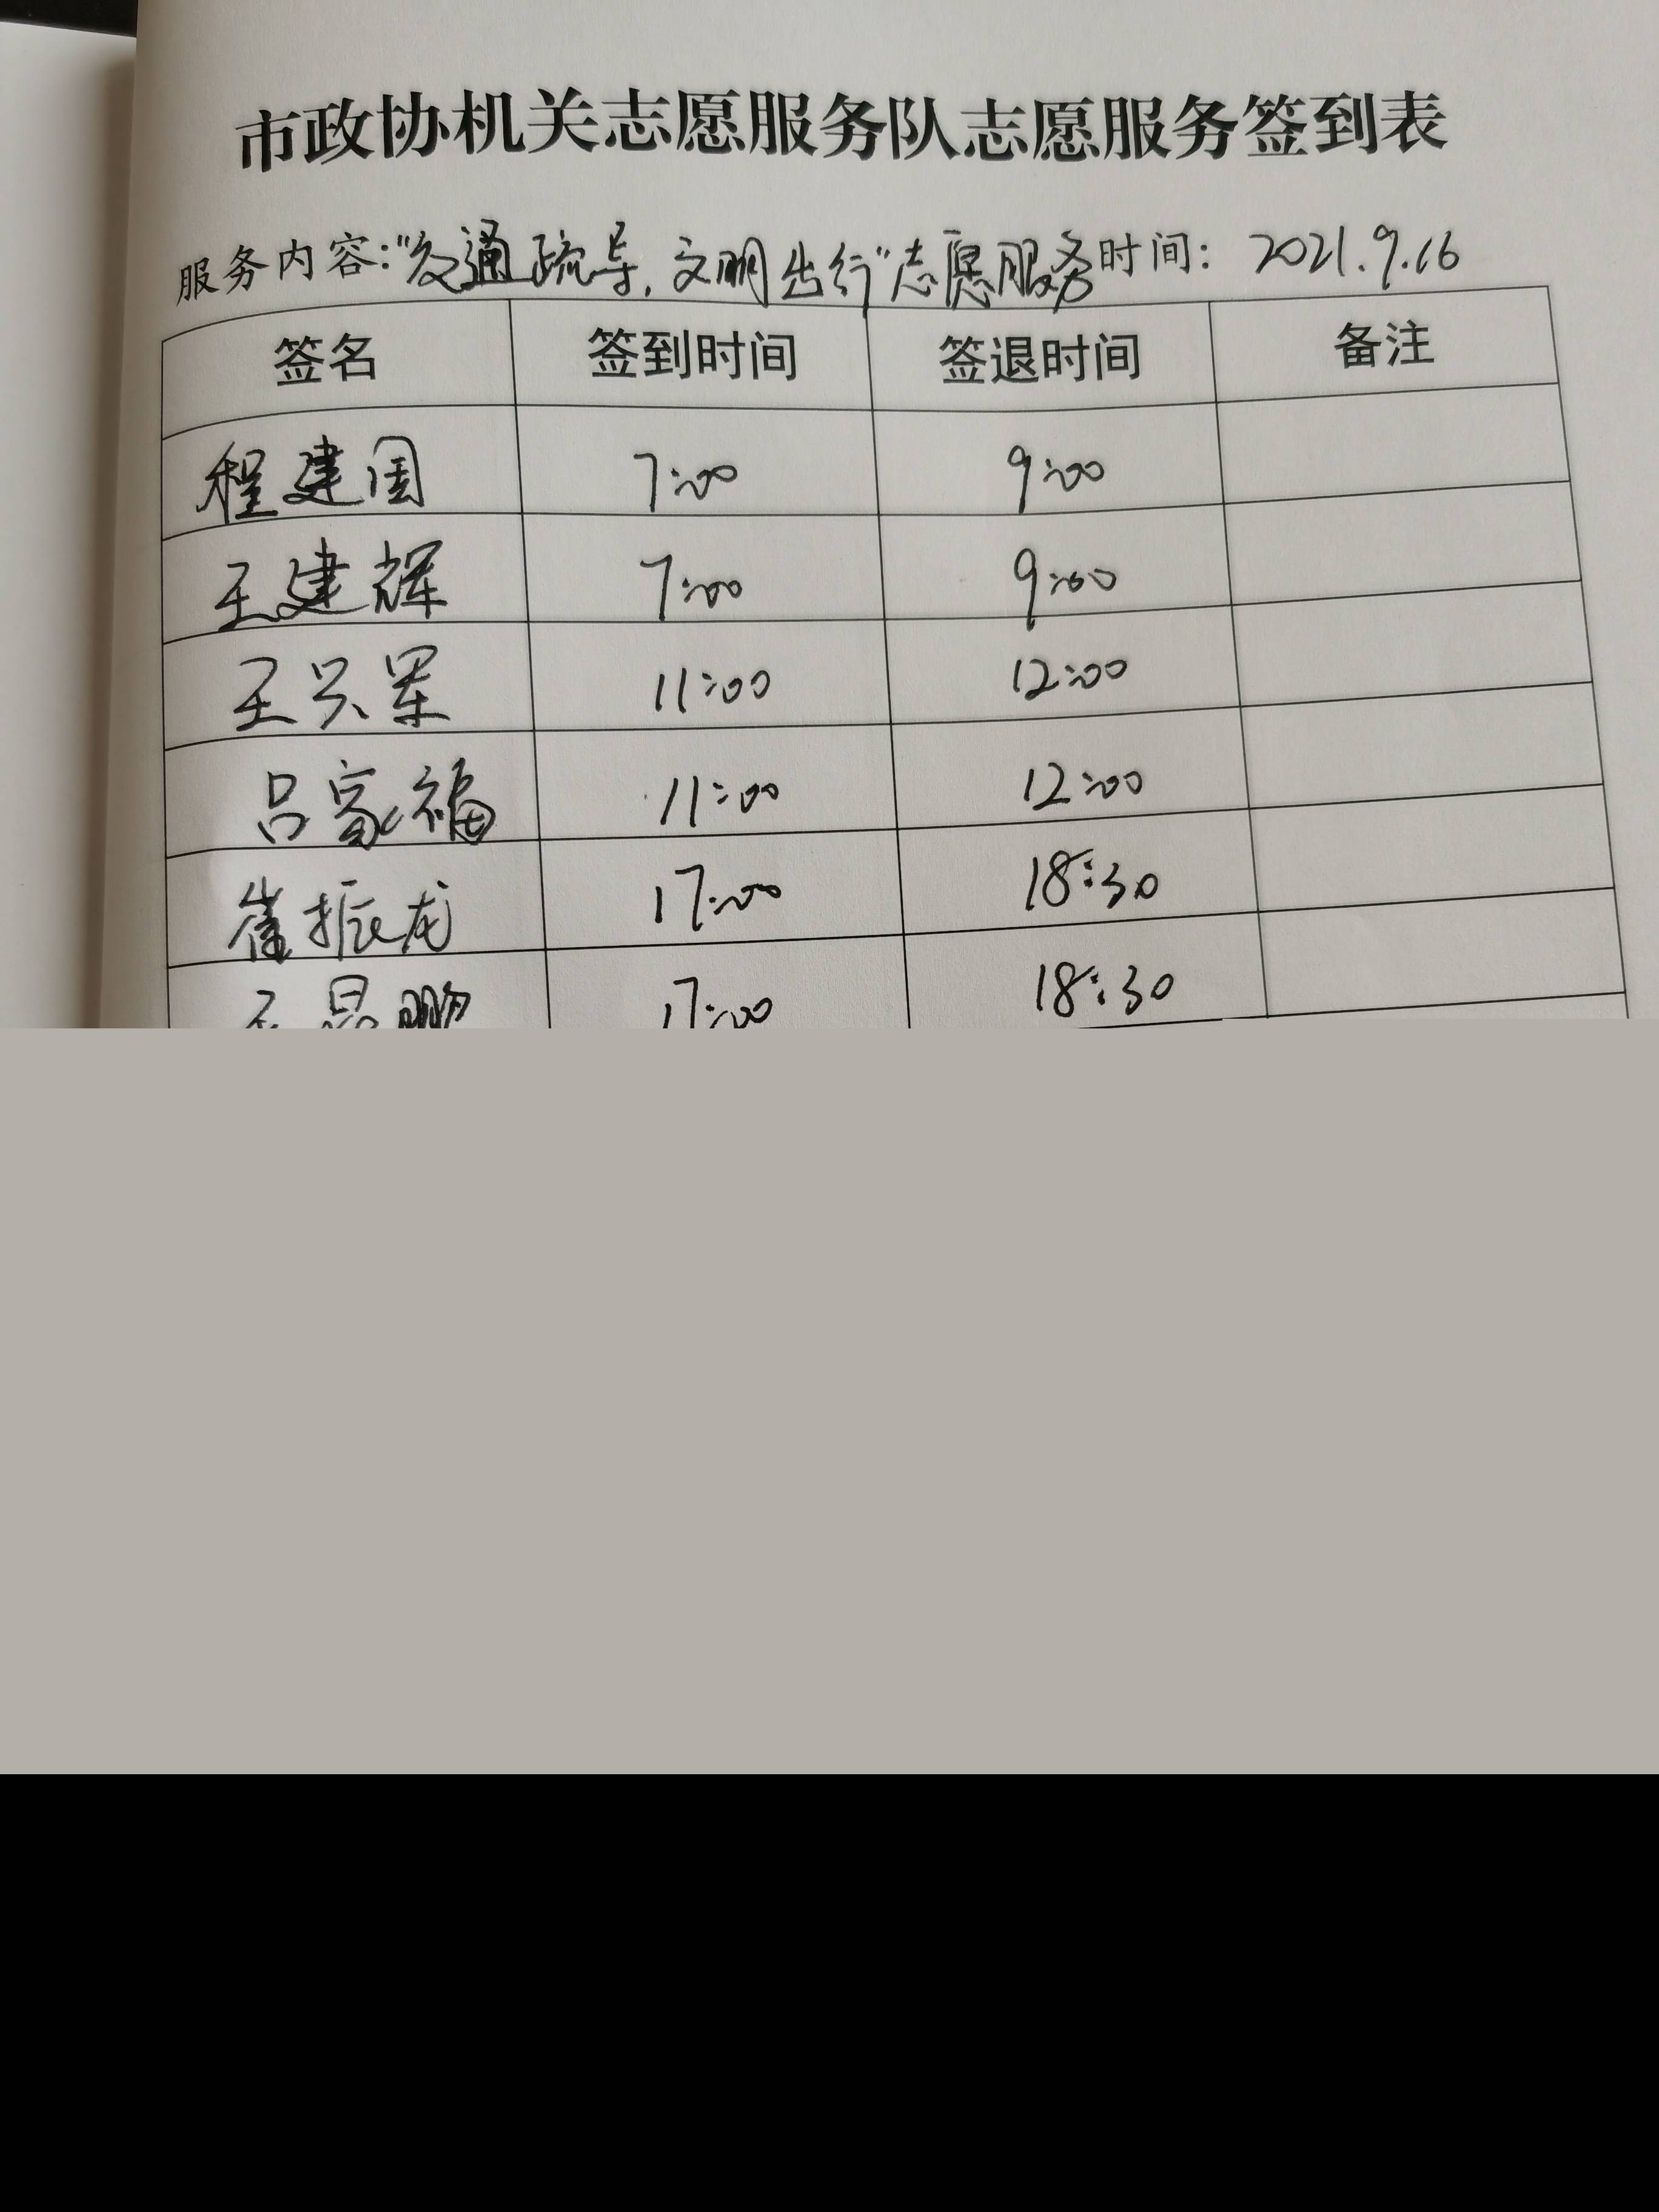 市政协机关志愿服务队志愿服务签到表
服务内容:“交通疏导,文明出行”志愿服务 时间: 2021.9.16
签名 签到时间 签退时间 备注
程建国 7:00 9:00
王建辉 7:00 9:00
王兴军 11:00 12:00
吕富福 11:00 12:00
崔振龙 17:00 18:30
王 鹏 17:00 18:30